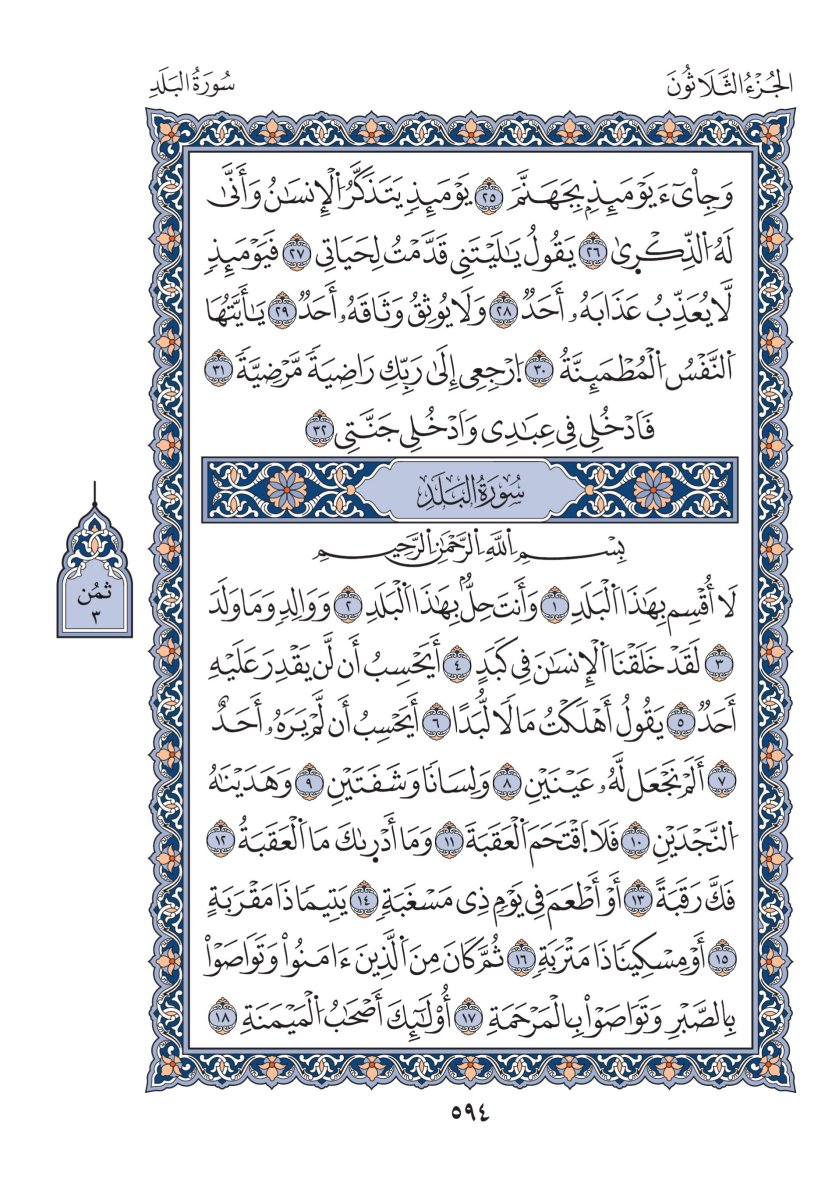 الجُزْءُ الثَّلَاثُونَ
سُورَةُ البَلَدِ
وَجِاْيٓءَ يَوْمَئِذِۭ بِجَهَنَّمَ ٢٥ يَوْمَئِذٍ يَتَذَكَّرُ اُ۬لْإِنسَٰنُ وَأَنَّىٰ
لَهُ اُ۬لذِّكْرٜىٰ ٢٦ يَقُولُ يَٰلَيْتَنِى قَدَّمْتُ لِحَيَاتِى ٢٧ فَيَوْمَئِذٍ
لَّا يُعَذِّبُ عَذَابَهُۥٓ أَحَدٌ ٢٨ وَلَا يُوثِقُ وَثَاقَهُۥٓ أَحَدٌ ٢٩ يَٰٓأَيَّتُهَا
اَ۬لنَّفْسُ اُ۬لْمُطْمَئِنَّةُ ٣٠ اُ۪رْجِعِى إِلَىٰ رَبِّكِ رَاضِيَةً مَّرْضِيَّةً ٣١
فَادْخُلِى فِى عِبَٰدِى وَادْخُلِى جَنَّتِى ٣٢
سُورَةُ البَلَدِ
بِسْمِ اِ۬للَّهِ اِ۬لرَّحْمَٰنِ اِ۬لرَّحِيمِ
لَا أُقْسِم بِهَٰذَا اَ۬لْبَلَدِ ١ وَأَنتَ حِلٌّۢ بِهَٰذَا اَ۬لْبَلَدِ ٢ وَوَالِدٍ وَمَا وَلَدَ
٣ لَقَدْ خَلَقْنَا اَ۬لْإِنسَٰنَ فِى كَبَدٍ ٤ أَيَحْسِبُ أَن لَّن يَقْدِرَ عَلَيْهِ
أَحَدٌ ٥ يَقُولُ أَهْلَكْتُ مَالًا لُّبَدًا ٦ أَيَحْسِبُ أَن لَّمْ يَرَهُۥٓ أَحَدٌ
٧ أَلَمْ نَجْعَل لَّهُۥ عَيْنَيْنِ ٨ وَلِسَانًا وَشَفَتَيْنِ ٩ وَهَدَيْنَٰهُ
اُ۬لنَّجْدَيْنِ ١٠ فَلَا اَ۪قْتَحَمَ اَ۬لْعَقَبَةَ ١١ وَمَا أَدْرٜىٰكَ مَا اَ۬لْعَقَبَةُ ١٢
فَكَّ رَقَبَةً ١٣ أَوْ أَطْعَمَ فِى يَوْمٍ ذِى مَسْغَبَةٍ ١٤ يَتِيمًا ذَا مَقْرَبَةٍ
١٥ أَوْ مِسْكِينًا ذَا مَتْرَبَةٍ ١٦ ثُمَّ كَانَ مِنَ اَ۬لَّذِينَ ءَامَنُواْ وَتَوَاصَوْاْ
بِالصَّبْرِ وَتَوَاصَوْاْ بِالْمَرْحَمَةِ ١٧ أُوْلَٰٓئِكَ أَصْحَٰبُ اُ۬لْمَيْمَنَةِ ١٨
ثمُن
٣
٥٩٤